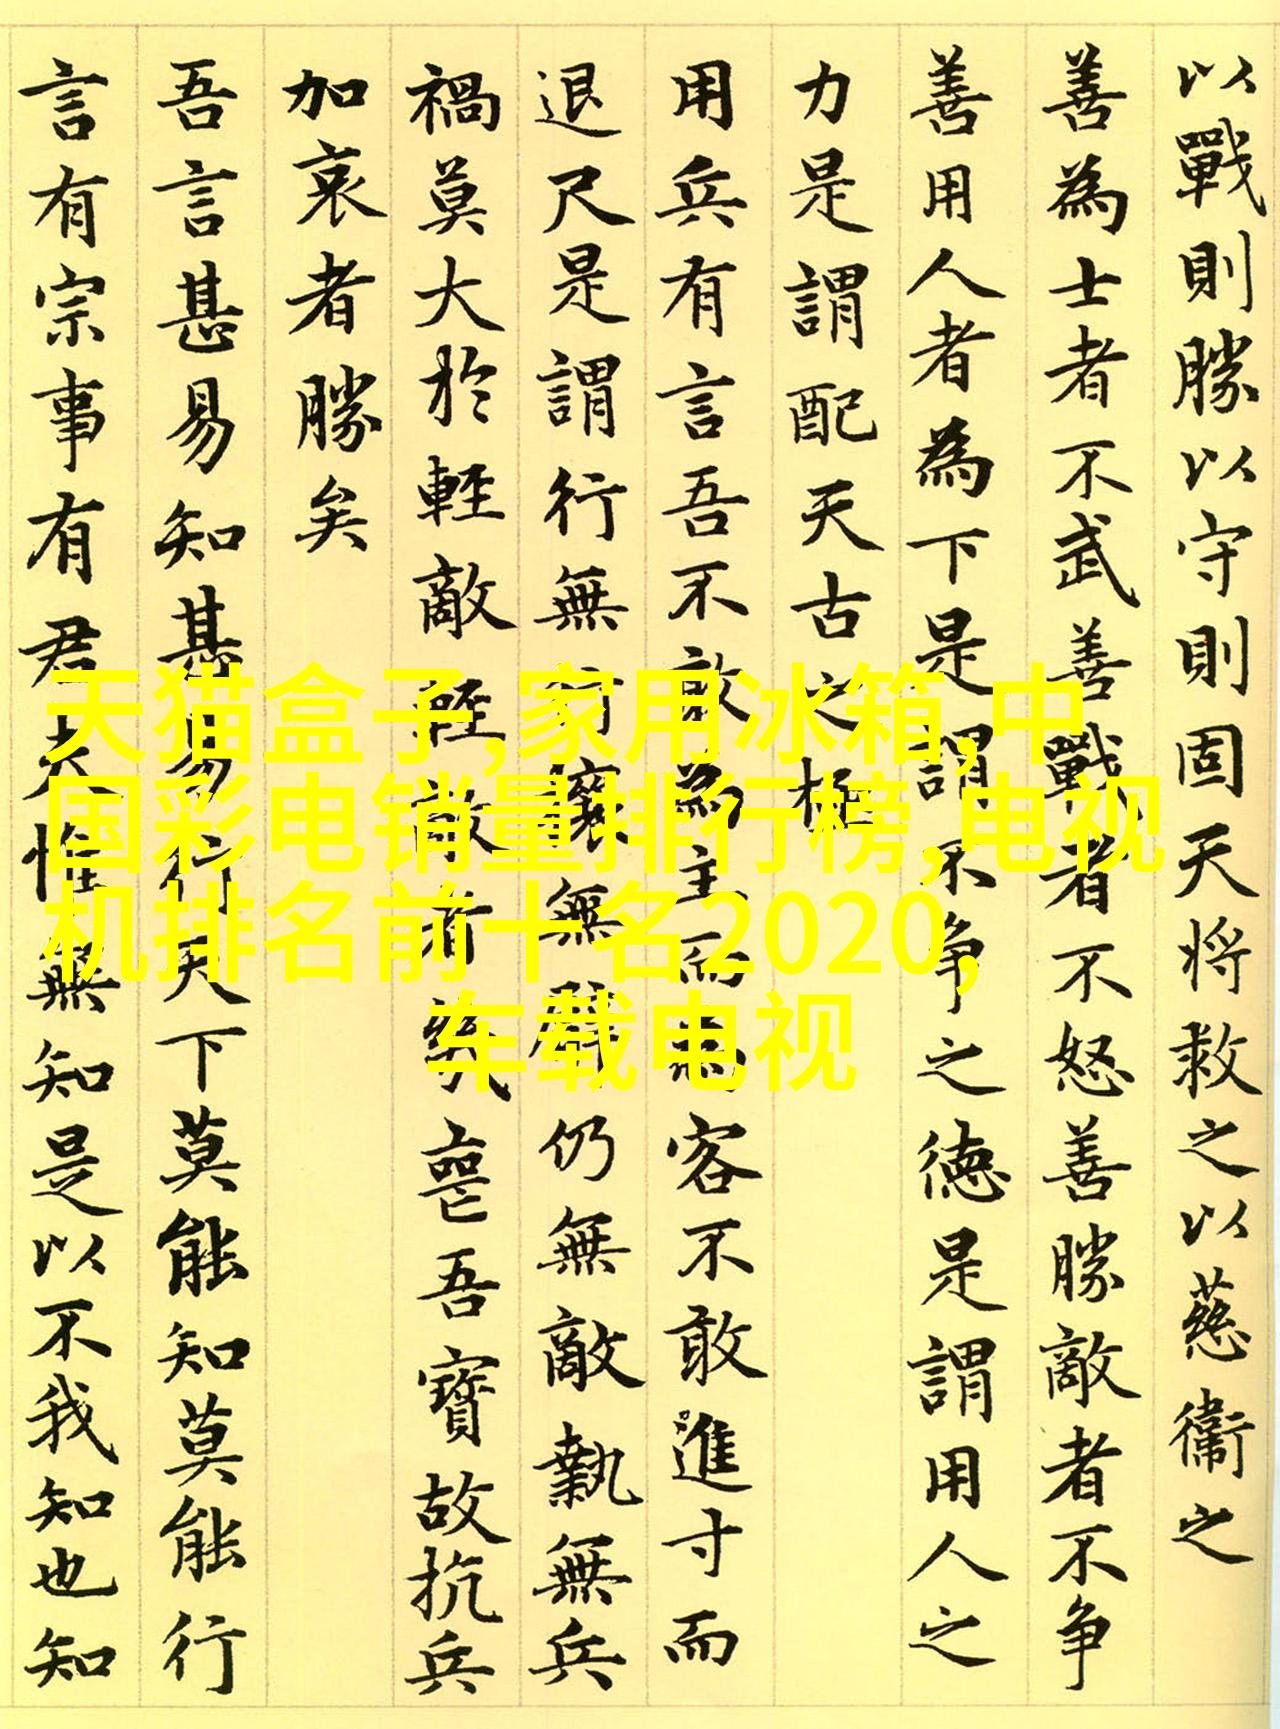 以戰則勝以守則固天将救之以慈衞之
善為士者不武善戰者不怒善勝敵者不争
善用人者為下是謂不争之德是謂用人之
力是謂配天古之極
用兵有言吾不敢為主而為客不敢進寸而
退尺是謂行無行攘無臂仍無敵執無兵
禍莫大於輕敵輕敵者幾喪吾寳故抗兵
加哀者勝矣
吾言甚易知甚易行天下莫能知莫能行
言有宗事有君夫惟無知是以不我知也知
天猫盒子,家用冰箱,中
国彩电销量排行榜,电视
机排名前十名2020,
车载电视